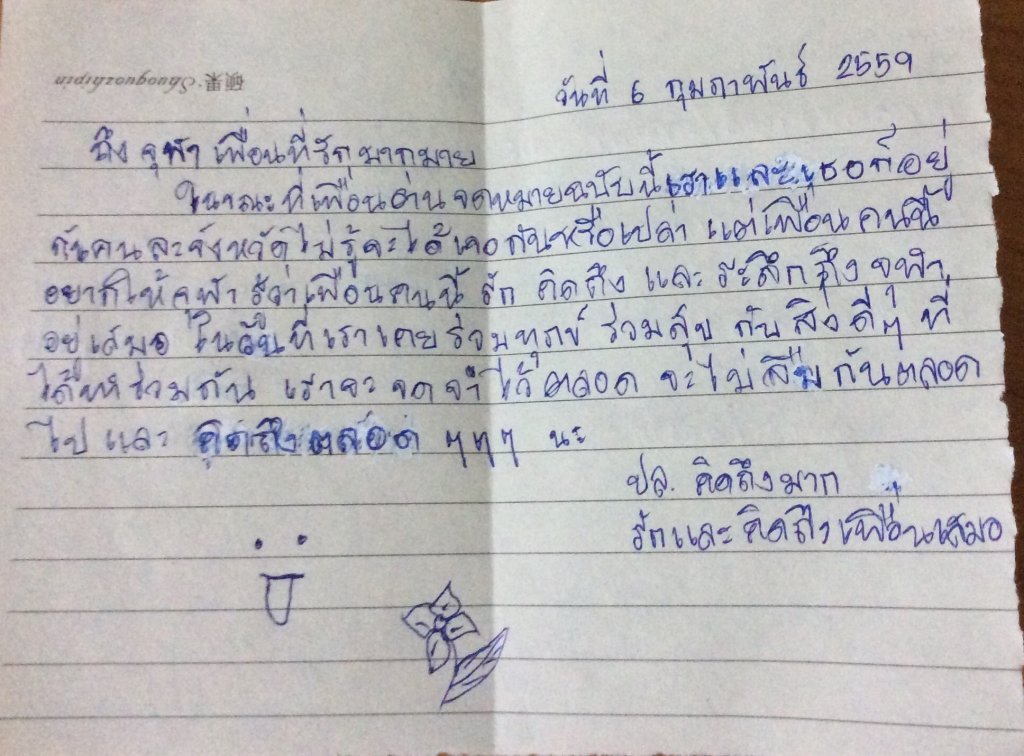 硕果·Shuoguozhipin
วันที่ 6 กุมภาพันธ์ 2559
ถึง จุฬา เพื่อนที่รักมากมาย
ในขณะที่เพื่อนอ่านจดหมายฉบับนี้เราและเธอก็อยู่
กันคนละจังหวัดไม่รู้จะได้เจอกันหรือเปล่า แต่เพื่อนคนนี้
อยากให้จุฬา รู้ว่าเพื่อนคนนี้ รัก คิดถึง และ ระลึกถึง จุฬา
อยู่เสมอ ในวันที่เราเคยร่วมทุกข์ ร่วมสุข กับสิ่งดีๆ ที่
ได้ทำร่วมกัน เราจะจดจำไว้ตลอด จะไม่ลืมกันตลอด
ไป และ คิดถึงตลอด ๆๆๆ นะ
ปล. คิดถึงมาก
รักและคิดถึงเพื่อนเสมอ